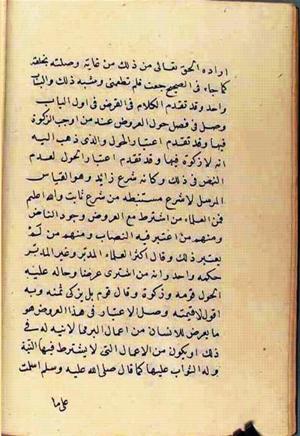 اراده الحق تعالى من ذلك من غاية وصلته بخلقه
كما جاء في الصحيح جعت فلم تطعمني وشبه ذلك والباب
واحد وقد تقدم الكلام في القرض في اول الباب
وصل في فصل حول العروض عند من اوجب الزكوة
فيها وقد تقدم اعتبار الحول والذي ذهب اليه
انه لا زكوة فيها وقد تقدم اعتبار الحول لعدم
النص في ذلك وكانه شرع زائد وهو القياس
المرسل لا شرع مستنبطه من شرع ثابت والله اعلم
فمن العلماء من اشترط مع العروض وجود الناض
ومنهم من اعتبر فيه النصاب ومنهم من لم
يعتبر ذلك وقال اكثر العلماء المدير وغير المدير
حكمه واحد وانه من اشترى عرضا وحال عليه
الحول قومه وزكوة وقال قوم بل يزكى ثمنه وبه
اقول لا قيمته وصل الاعتبار في هذا العروض هو
ما يعرض للانسان من اعمال البر مما لا نية له في
ذلك او يكون من الاعمال التي لا يشترط فيها النية
وله الثواب عليها كما قال صلى الله عليه وسلم اسلمت
على ما